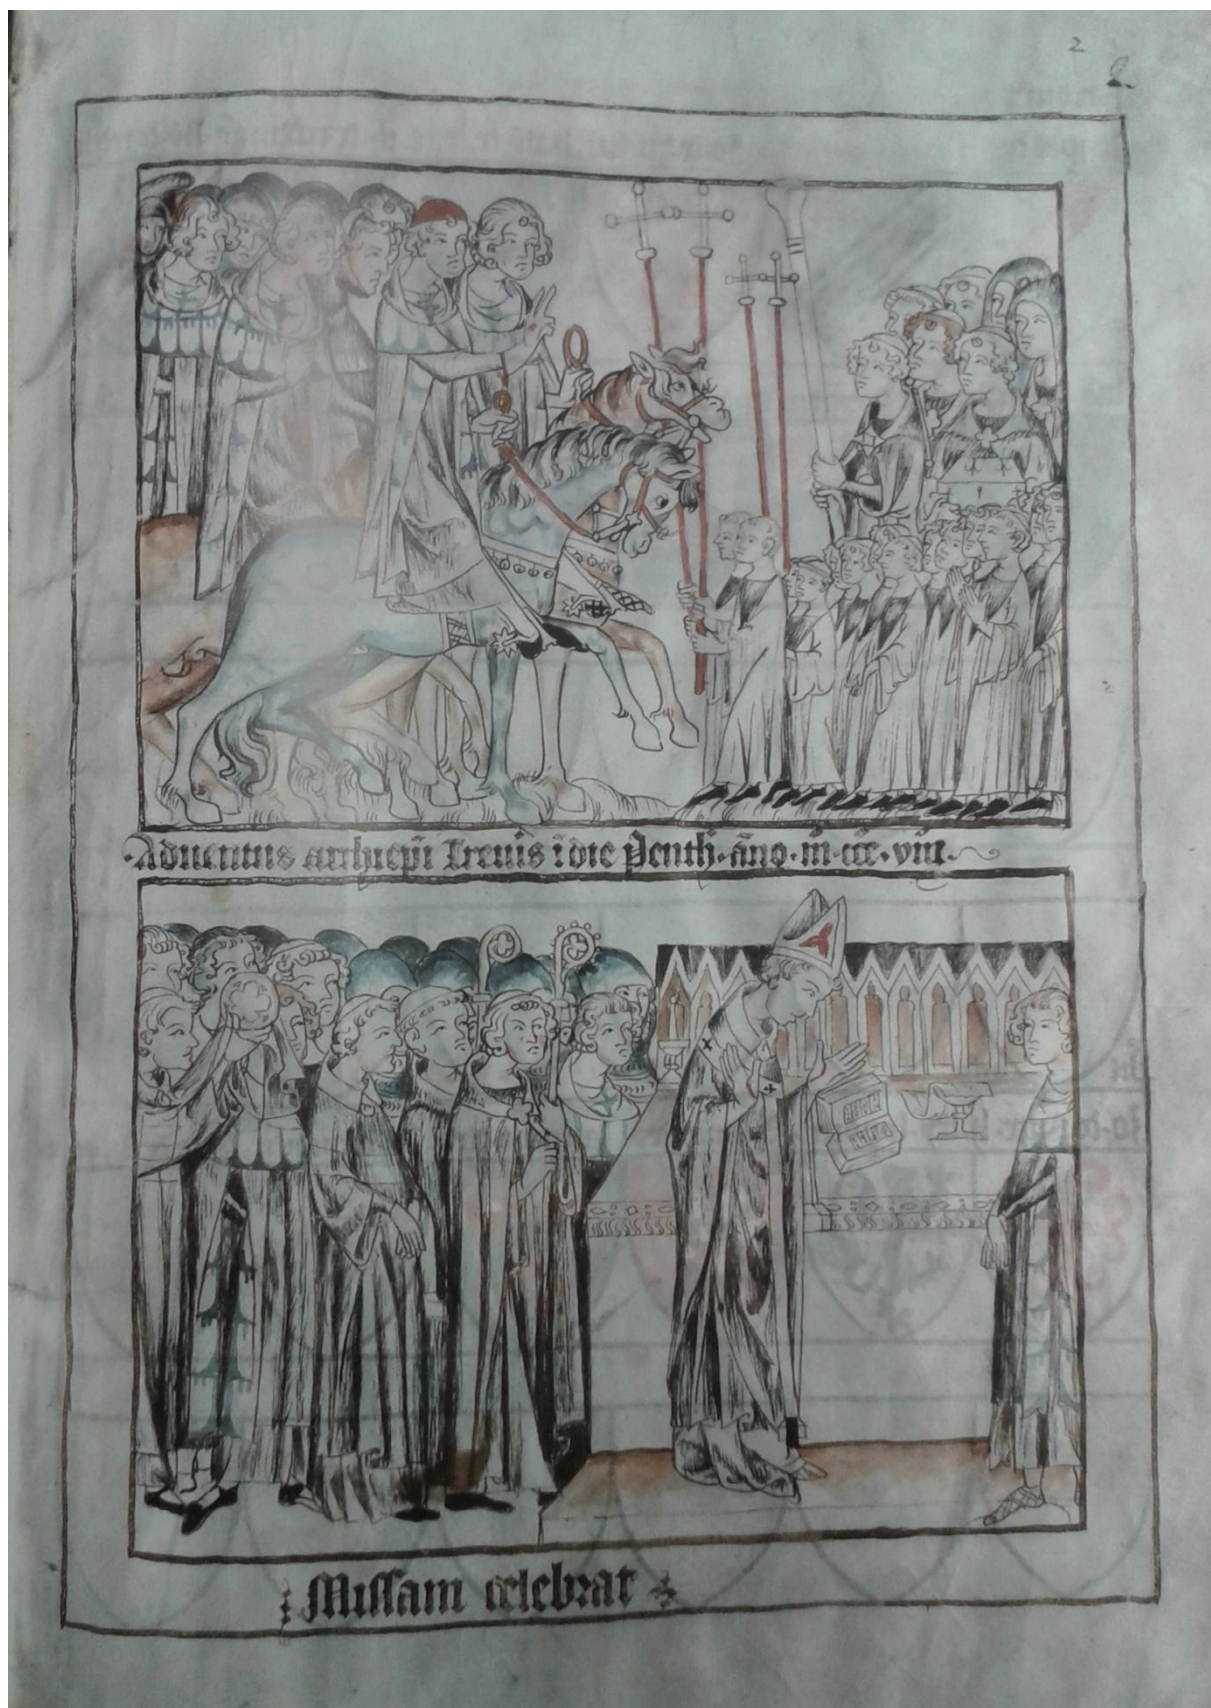 2
Aduentus archiep̄i Treuīs ī die Penth. āno. m̄. ccc. viiī.
Missam celebrat